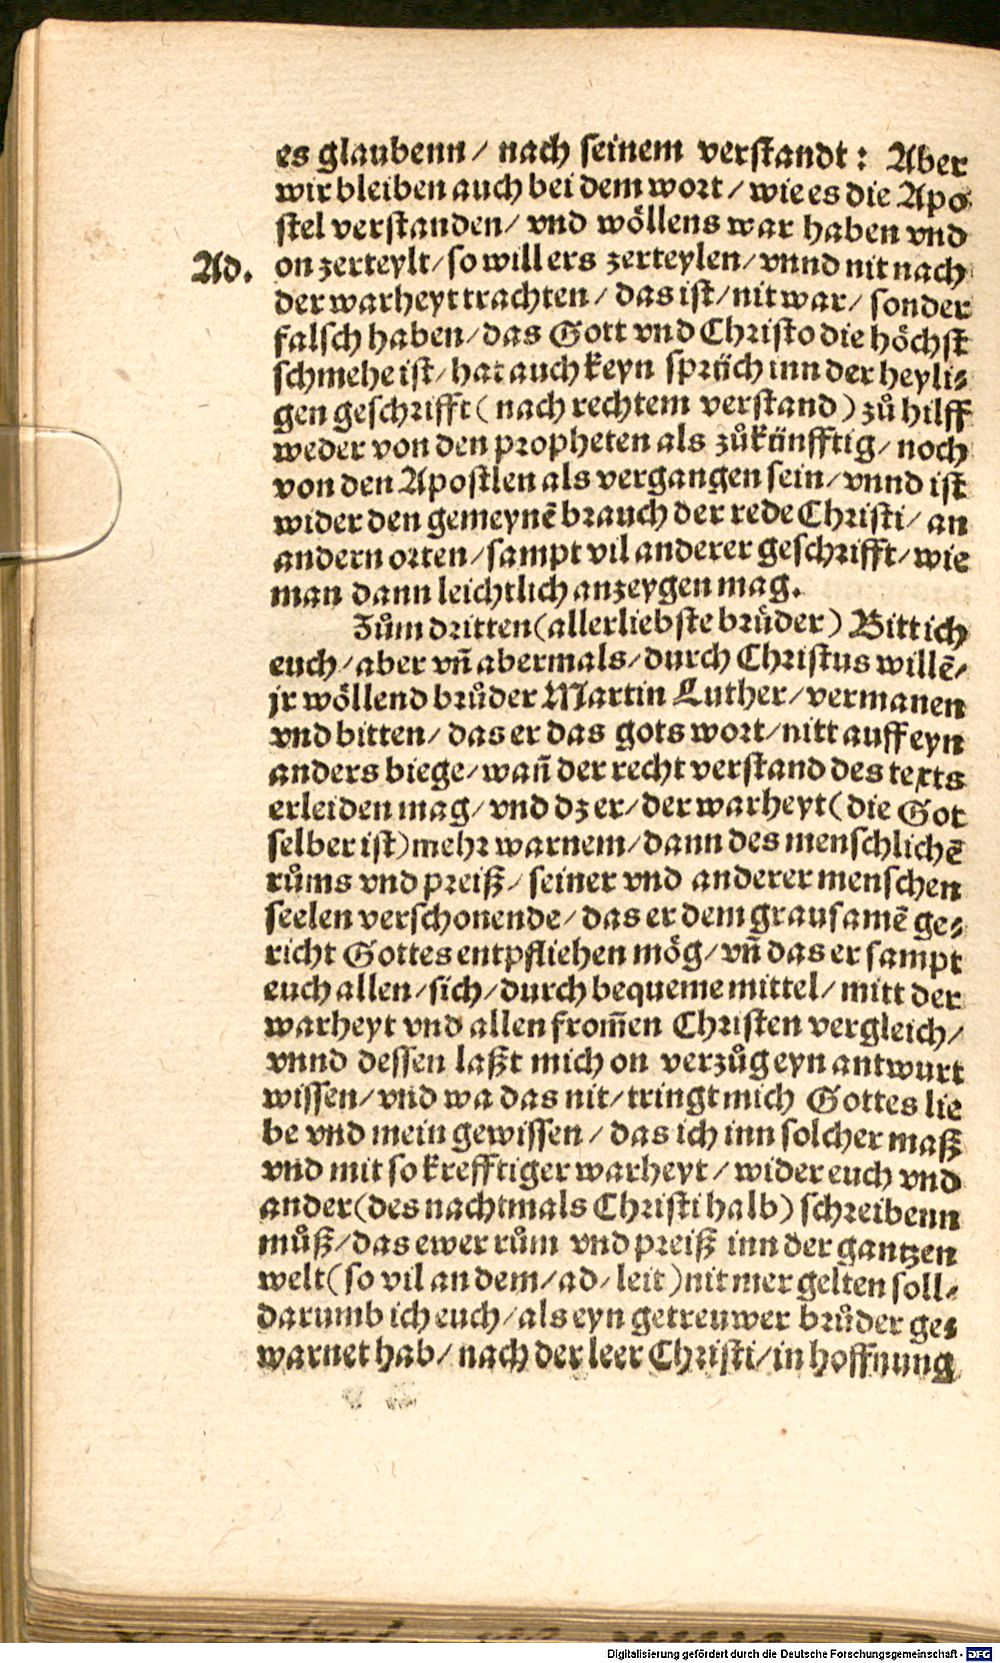 es glaubenn / nach seinem verstandt : Aber
wir bleiben auch bei dem wort / wie es die Apo
stel verstanden / vnd wöllens war haben vnd
Ad. on zerteylt / so will ers zerteylen / vnnd nit nach
der warheyt trachten / das ist / nit war / sonder
falsch haben / das Gott vnd Christo die höchst
schmehe ist / hat auch keyn sprüch inn der heyli⸗
gen geschrifft ( nach rechtem verstand ) zů hilff
weder von den propheten als zůkünfftig / noch
von den Apostlen als vergangen sein / vnnd ist
wider den gemeynē brauch der rede Christi / an
andern orten / sampt vil anderer geschrifft / wie
man dann leichtlich anzeygen mag.
Zům dritten (allerliebste brůder) Bitt ich
euch / aber vn̄ abermals / durch Christus willē /
jr wöllend brůder Martin Luther / vermanen
vnd bitten / das er das gots wort / nitt auff eyn
anders biege / wan̄ der recht verstand des texts
erleiden mag / vnd dz er / der warheyt (die Got
selber ist) mehr warnem / dann des menschlichē
růms vnd preiß / seiner vnd anderer menschen
seelen verschonende / das er dem grausamē ge⸗
richt Gottes entpfliehen mög / vn̄ das er sampt
euch allen / sich / durch bequeme mittel / mitt der
warheyt vnd allen from̄en Christen vergleich /
vnnd dessen laßt mich on verzůg eyn antwurt
wissen / vnd wa das nit / tringt mich Gottes lie
be vnd mein gewissen / das ich inn solcher maß
vnd mit so krefftiger warheyt / wider euch vnd
ander (des nachtmals Christi halb) schreibenn
můß / das ewer rům vnd preiß inn der gantzen
welt (so vil an dem / ad / leit) nit mer gelten soll⸗
darumb ich euch / als eyn getreuwer brůder ge⸗
warnet hab / nach der leer Christi / in hoffnung
Digitalisierung gefördert durch die Deutsche Forschungsgemeinschaft - DFG